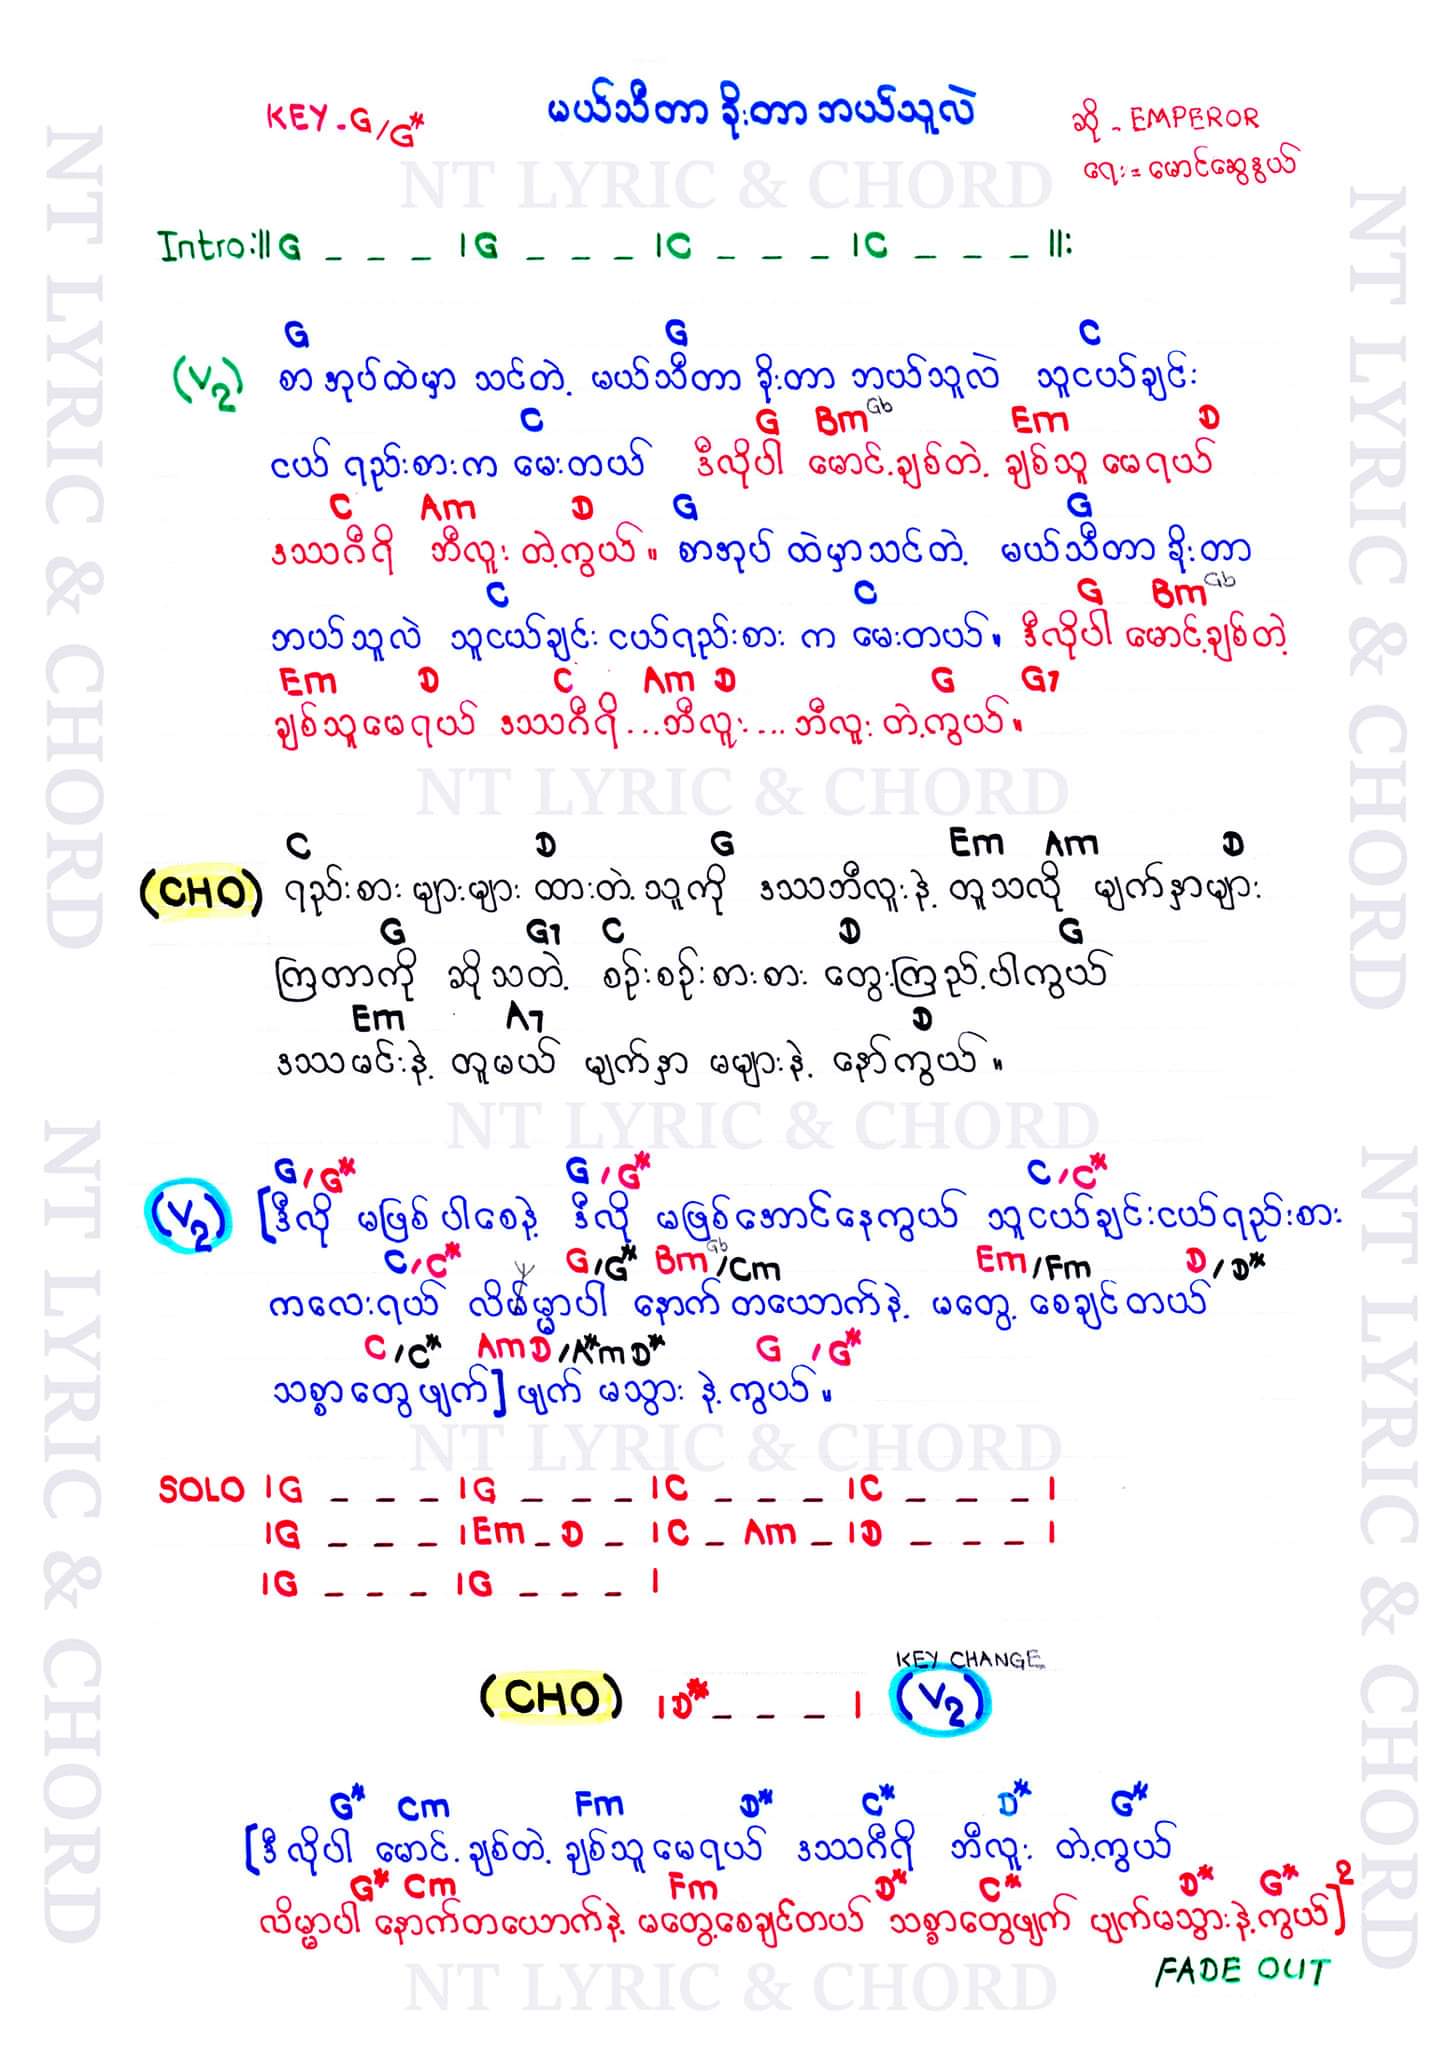 KEY - G/G* မယ်သီတာ ခိုးတာ ဘယ်သူလဲ ဆို - EMPEROR
ရေး = မောင်ဆွေနွယ်
NT LYRIC & CHORD
Intro :|| G _ _ _ | G _ _ _ | C _ _ _ | C _ _ _ ||:
G G C
(V2) စာအုပ်ထဲမှာ သင်တဲ့ မယ်သီတာ ခိုးတာ ဘယ်သူလဲ သူငယ်ချင်း
C G Bm Gb Em D
ငယ် ရည်းစားက မေးတယ် ဒီလိုပါ မောင့်ချစ်တဲ့ ချစ်သူ မေရယ်
C Am D G G
ဒဿဂီရိ ဘီလူး တဲ့ကွယ်။ စာအုပ် ထဲမှာသင်တဲ့ မယ်သီတာ ခိုးတာ
C C G Bm Gb
ဘယ်သူလဲ သူငယ်ချင်း ငယ်ရည်းစား က မေးတယ်။ ဒီလိုပါ မောင့်ချစ်တဲ့
Em D C Am D G G7
ချစ်သူမေရယ် ဒဿဂီရိ ... ဘီလူး ... ဘီလူး တဲ့ကွယ်။
NT LYRIC & CHORD
C D G Em Am D
(CHO) ရည်းစား များများ ထားတဲ့သူကို ဒဿဘီလူးနဲ့ တူသလို မျက်နှာများ
G G7 C D G
ကြတာကို ဆိုသတဲ့ စဉ်းစဉ်းစားစား တွေးကြည့်ပါကွယ်
Em A7 D
ဒဿမင်းနဲ့ တူမယ် မျက်နှာ မများနဲ့ နော်ကွယ်။
NT LYRIC & CHORD
G/G* G/G* C/C*
(V2) [ဒီလို မဖြစ်ပါစေနဲ့ ဒီလို မဖြစ်အောင်နေကွယ် သူငယ်ချင်းငယ်ရည်းစား
C/C* G/G* Bm Gb/Cm Em/Fm D/D*
ကလေးရယ် လိမ္မာပါ နောက်တယောက်နဲ့ မတွေ့ စေချင်တယ်
C/C* Am D/A*m D* G/G*
သစ္စာတွေဖျက်] ဖျက် မသွား နဲ့ ကွယ်။
NT LYRIC & CHORD
SOLO | G _ _ _ | G _ _ _ | C _ _ _ | C _ _ _ |
| G _ _ _ | Em _ D _ | C _ Am _ | D _ _ _ |
| G _ _ _ | G _ _ _ |
KEY CHANGE
(CHO) | D* _ _ _ | (V2)
G* Cm Fm D* C* D* G*
[ဒီလိုပါ မောင့်ချစ်တဲ့ ချစ်သူမေရယ် ဒဿဂီရိ ဘီလူး တဲ့ကွယ်
G* Cm Fm D* C* D* G*
လိမ္မာပါ နောက်တယောက်နဲ့ မတွေ့စေချင်တယ် သစ္စာတွေဖျက် ဖျက်မသွားနဲ့ကွယ်]2
FADE OUT
NT LYRIC & CHORD
NT LYRIC & CHORD
NT LYRIC & CHORD
NT LYRIC & CHORD
NT LYRIC & CHORD